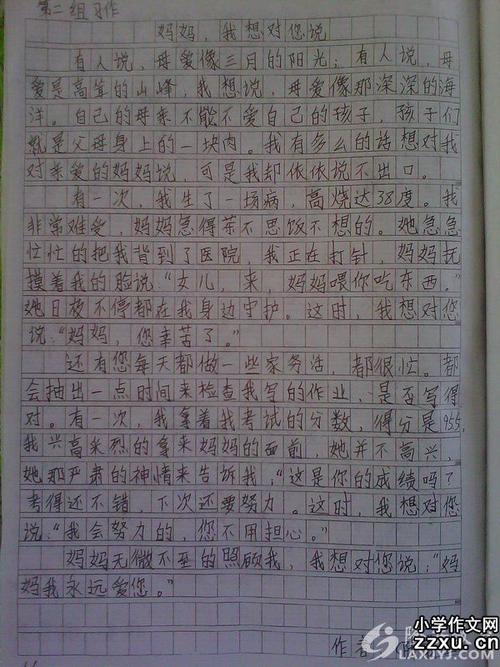 第二组习作
妈妈，我想对您说
有人说，母爱像三月的阳光；有人说，母
爱是高耸的山峰，我想说，母爱像那深深的海
洋。自己的母亲不能不爱自己的孩子，孩子们
就是父母身上的一块肉。我有多么的话想对我
对亲爱的妈妈说，可是我却依依说不出口。
有一次，我生了一场病，高烧达38度。我
非常难受，妈妈急得茶不思饭不想的。她急急
忙忙的把我背到了医院，我正在打针，妈妈抚
摸着我的脸说：“女儿，来，妈妈喂你吃东西。”
她日夜不停都在我身边守护。这时，我想对您
说：“妈妈，您辛苦了。”
还有您每天都做一些家务活，都很忙。都
会抽出一点时间来检查我写的作业，是否写得
对。有一次，我拿着我考试的分数，得分是95.5，
我兴高采烈的拿来妈妈的面前，她并不高兴，
她那严肃的神情来告诉我，“这是你的成绩吗？
考得还不错，下次还要努力。这时，我想对您
说：“我会努力的，您不用担心。”
妈妈无微不至的照顾我，我想对您说：“妈
妈我永远爱您。”
作者
小学作文网
zzxu.cn
LAXJYJ.COM